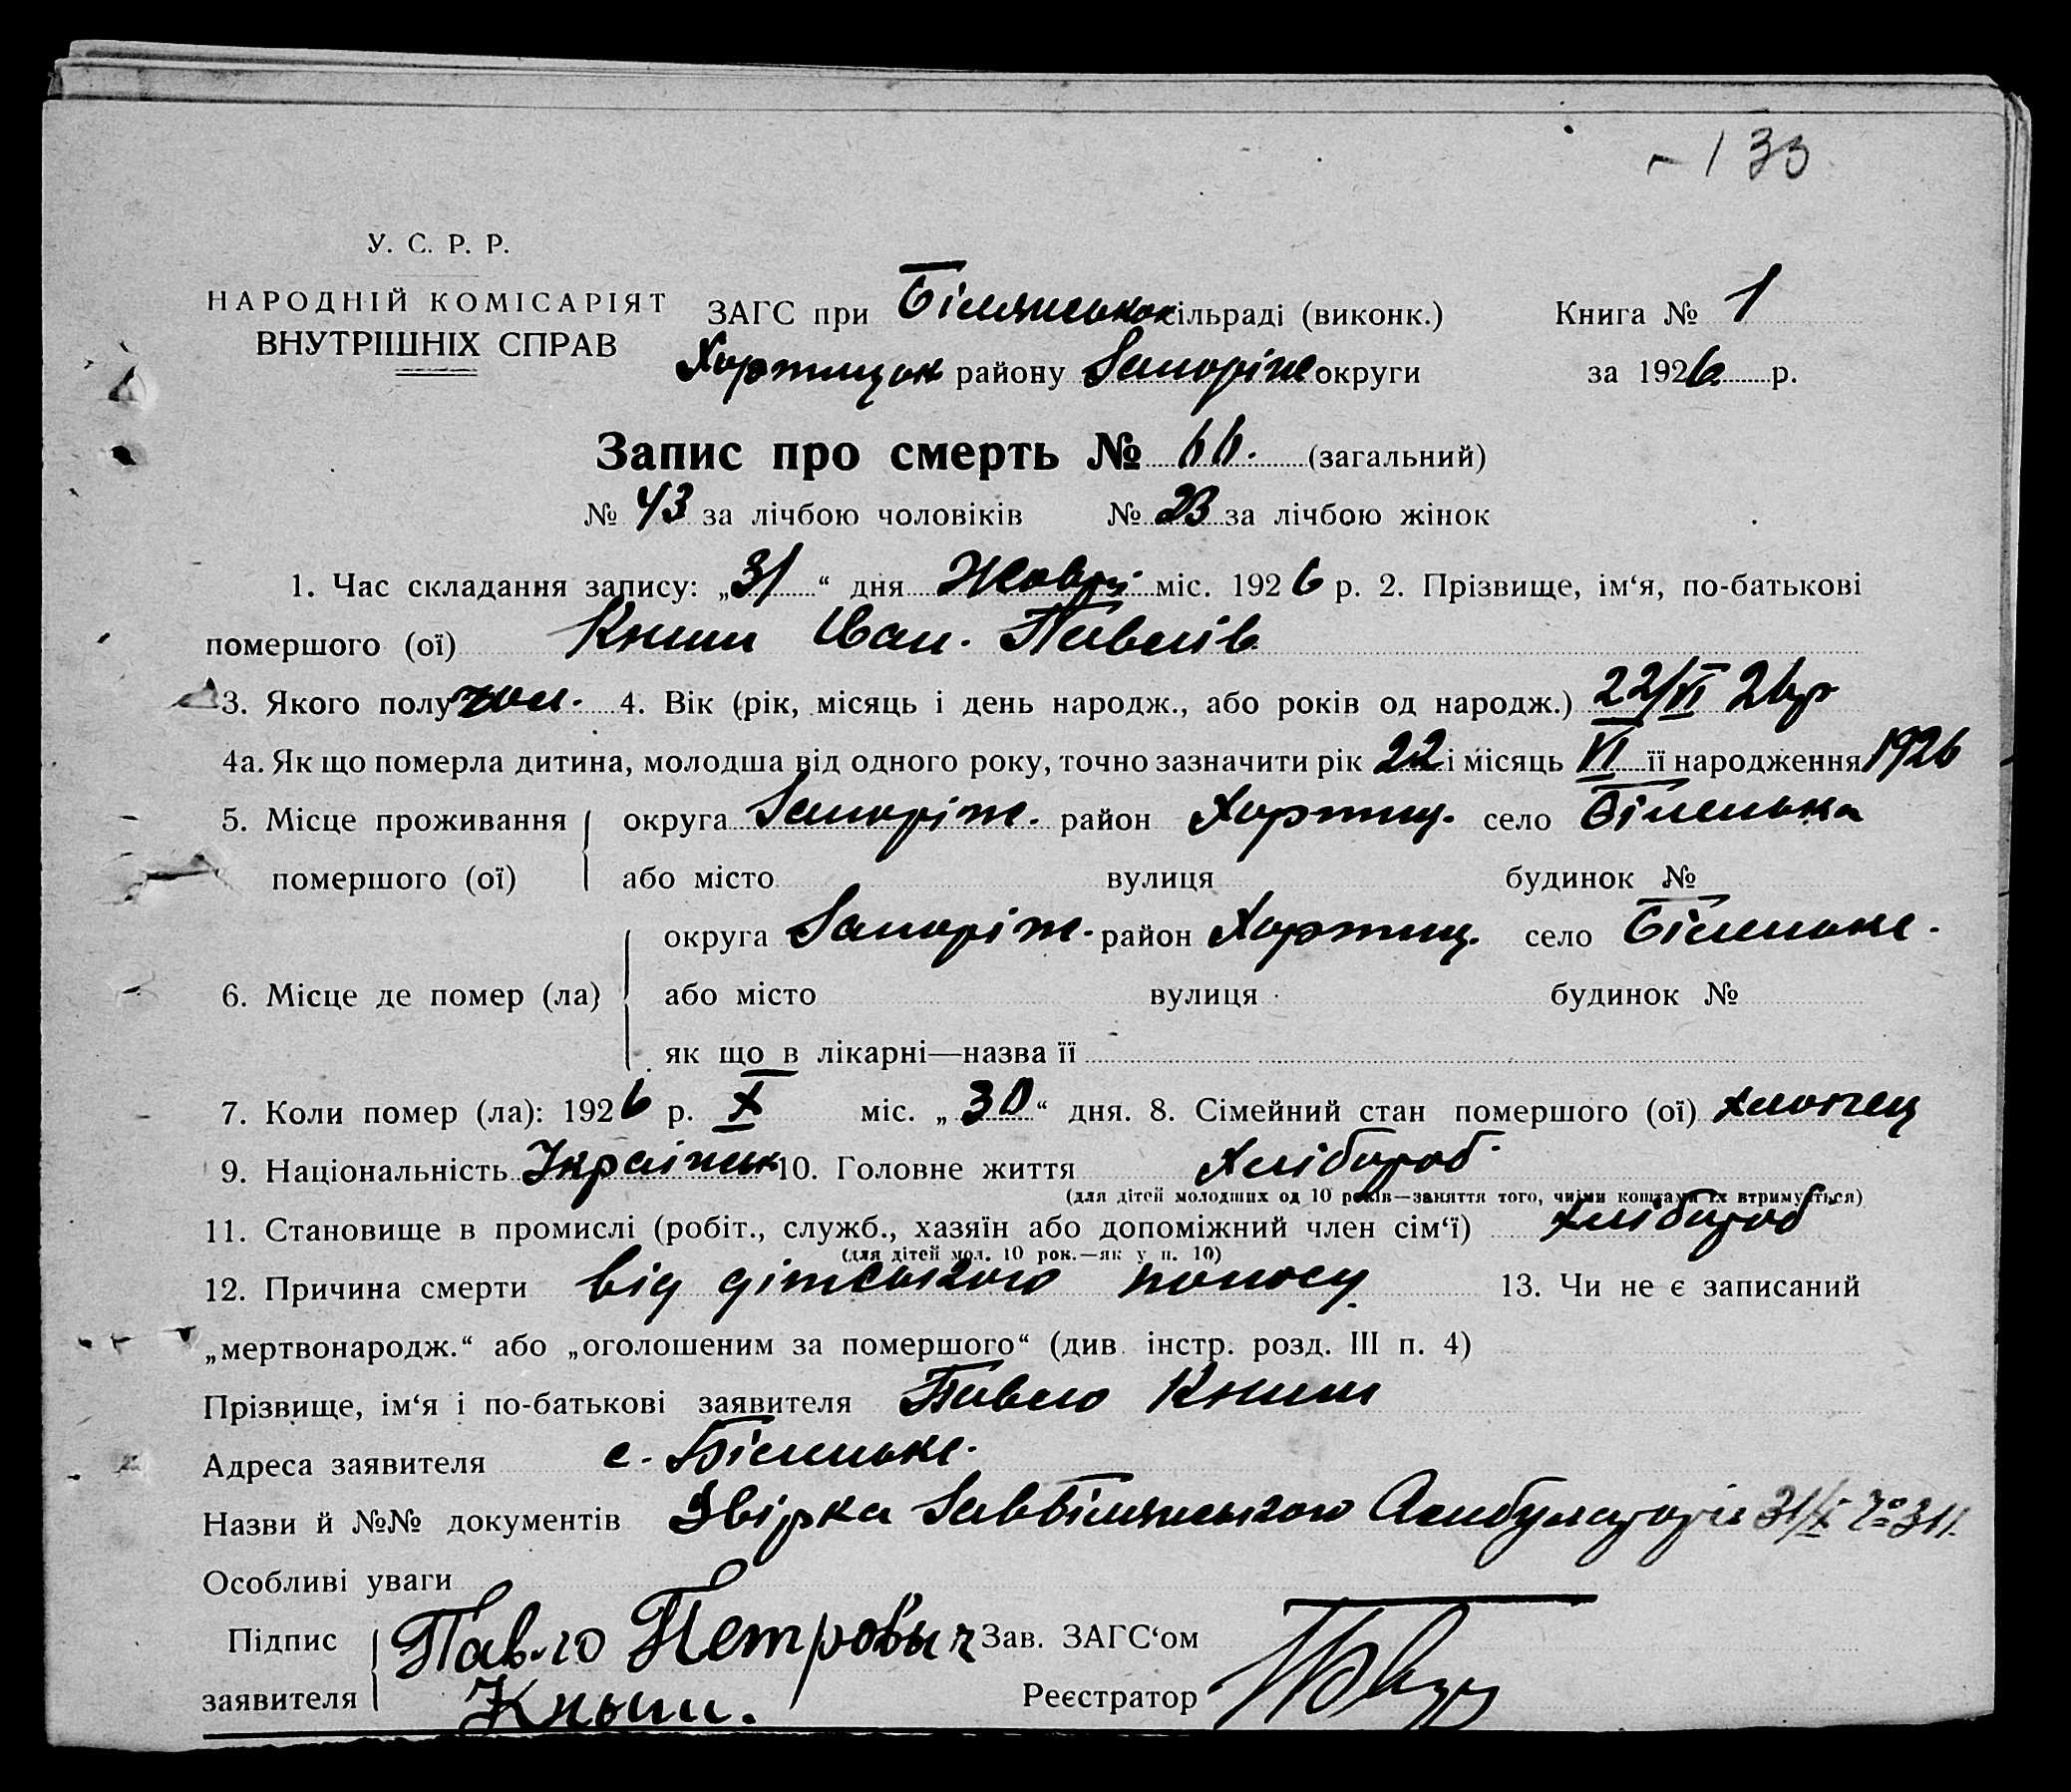 133
У. С. Р. Р.
НАРОДНІЙ КОМІСАРІЯТ
ВНУТРІШНІХ СПРАВ
ЗАГС при Білянськох сільраді (виконк.) Книга № 1
Хортицок району Запоріж округи за 1926 р.
Запис про смерть № 66. (загальний)
№ 43 за лічбою чоловіків № 23 за лічбою жінок
1. Час складання запису: „31“ дня Жовт міс. 1926 р. 2. Прізвище, ім‘я, по-батькові
помершого (ої) Книш Иван. Павлів
3. Якого полу чол. 4. Вік (рік, місяць і день народж., або років од народж.) 22/VI 26р
4а. Як що померла дитина, молодша від одного року, точно зазначити рік 22 і місяць VI її народження 1926
5. Місце проживання округа Запоріж. район Хортиц. село Біленька
помершого (ої) або місто вулиця будинок №
округа Запоріж. район Хортиц. село Біленьке.
6. Місце де помер (ла) або місто вулиця будинок №
як що в лікарні—назва її
7. Коли помер (ла): 1926 р. X міс. „30“ дня. 8. Сімейний стан помершого (ої) хлопец
9. Національність Українск 10. Головне життя Хлібороб.
(для дітей молодших од 10 років—заняття того, чиїми коштами їх втримується)
11. Становище в промислі (робіт., служб., хазяїн або допоміжний член сім‘ї) хлібороб
(для дітей мол. 10 рок.—як у п. 10)
12. Причина смерти від дітського поносу 13. Чи не є записаний
„мертвонародж.“ або „оголошеним за помершого“ (див. інстр. розд. III п. 4)
Прізвище, ім‘я і по-батькові заявителя Павло Книш
Адреса заявителя с. Біленьке.
Назви й №№ документів Амбулаторіи 31/X 311
Особливі уваги
Підпис Павло Петровыч Зав. ЗАГС‘ом
заявителя Кныш. Реєстратор